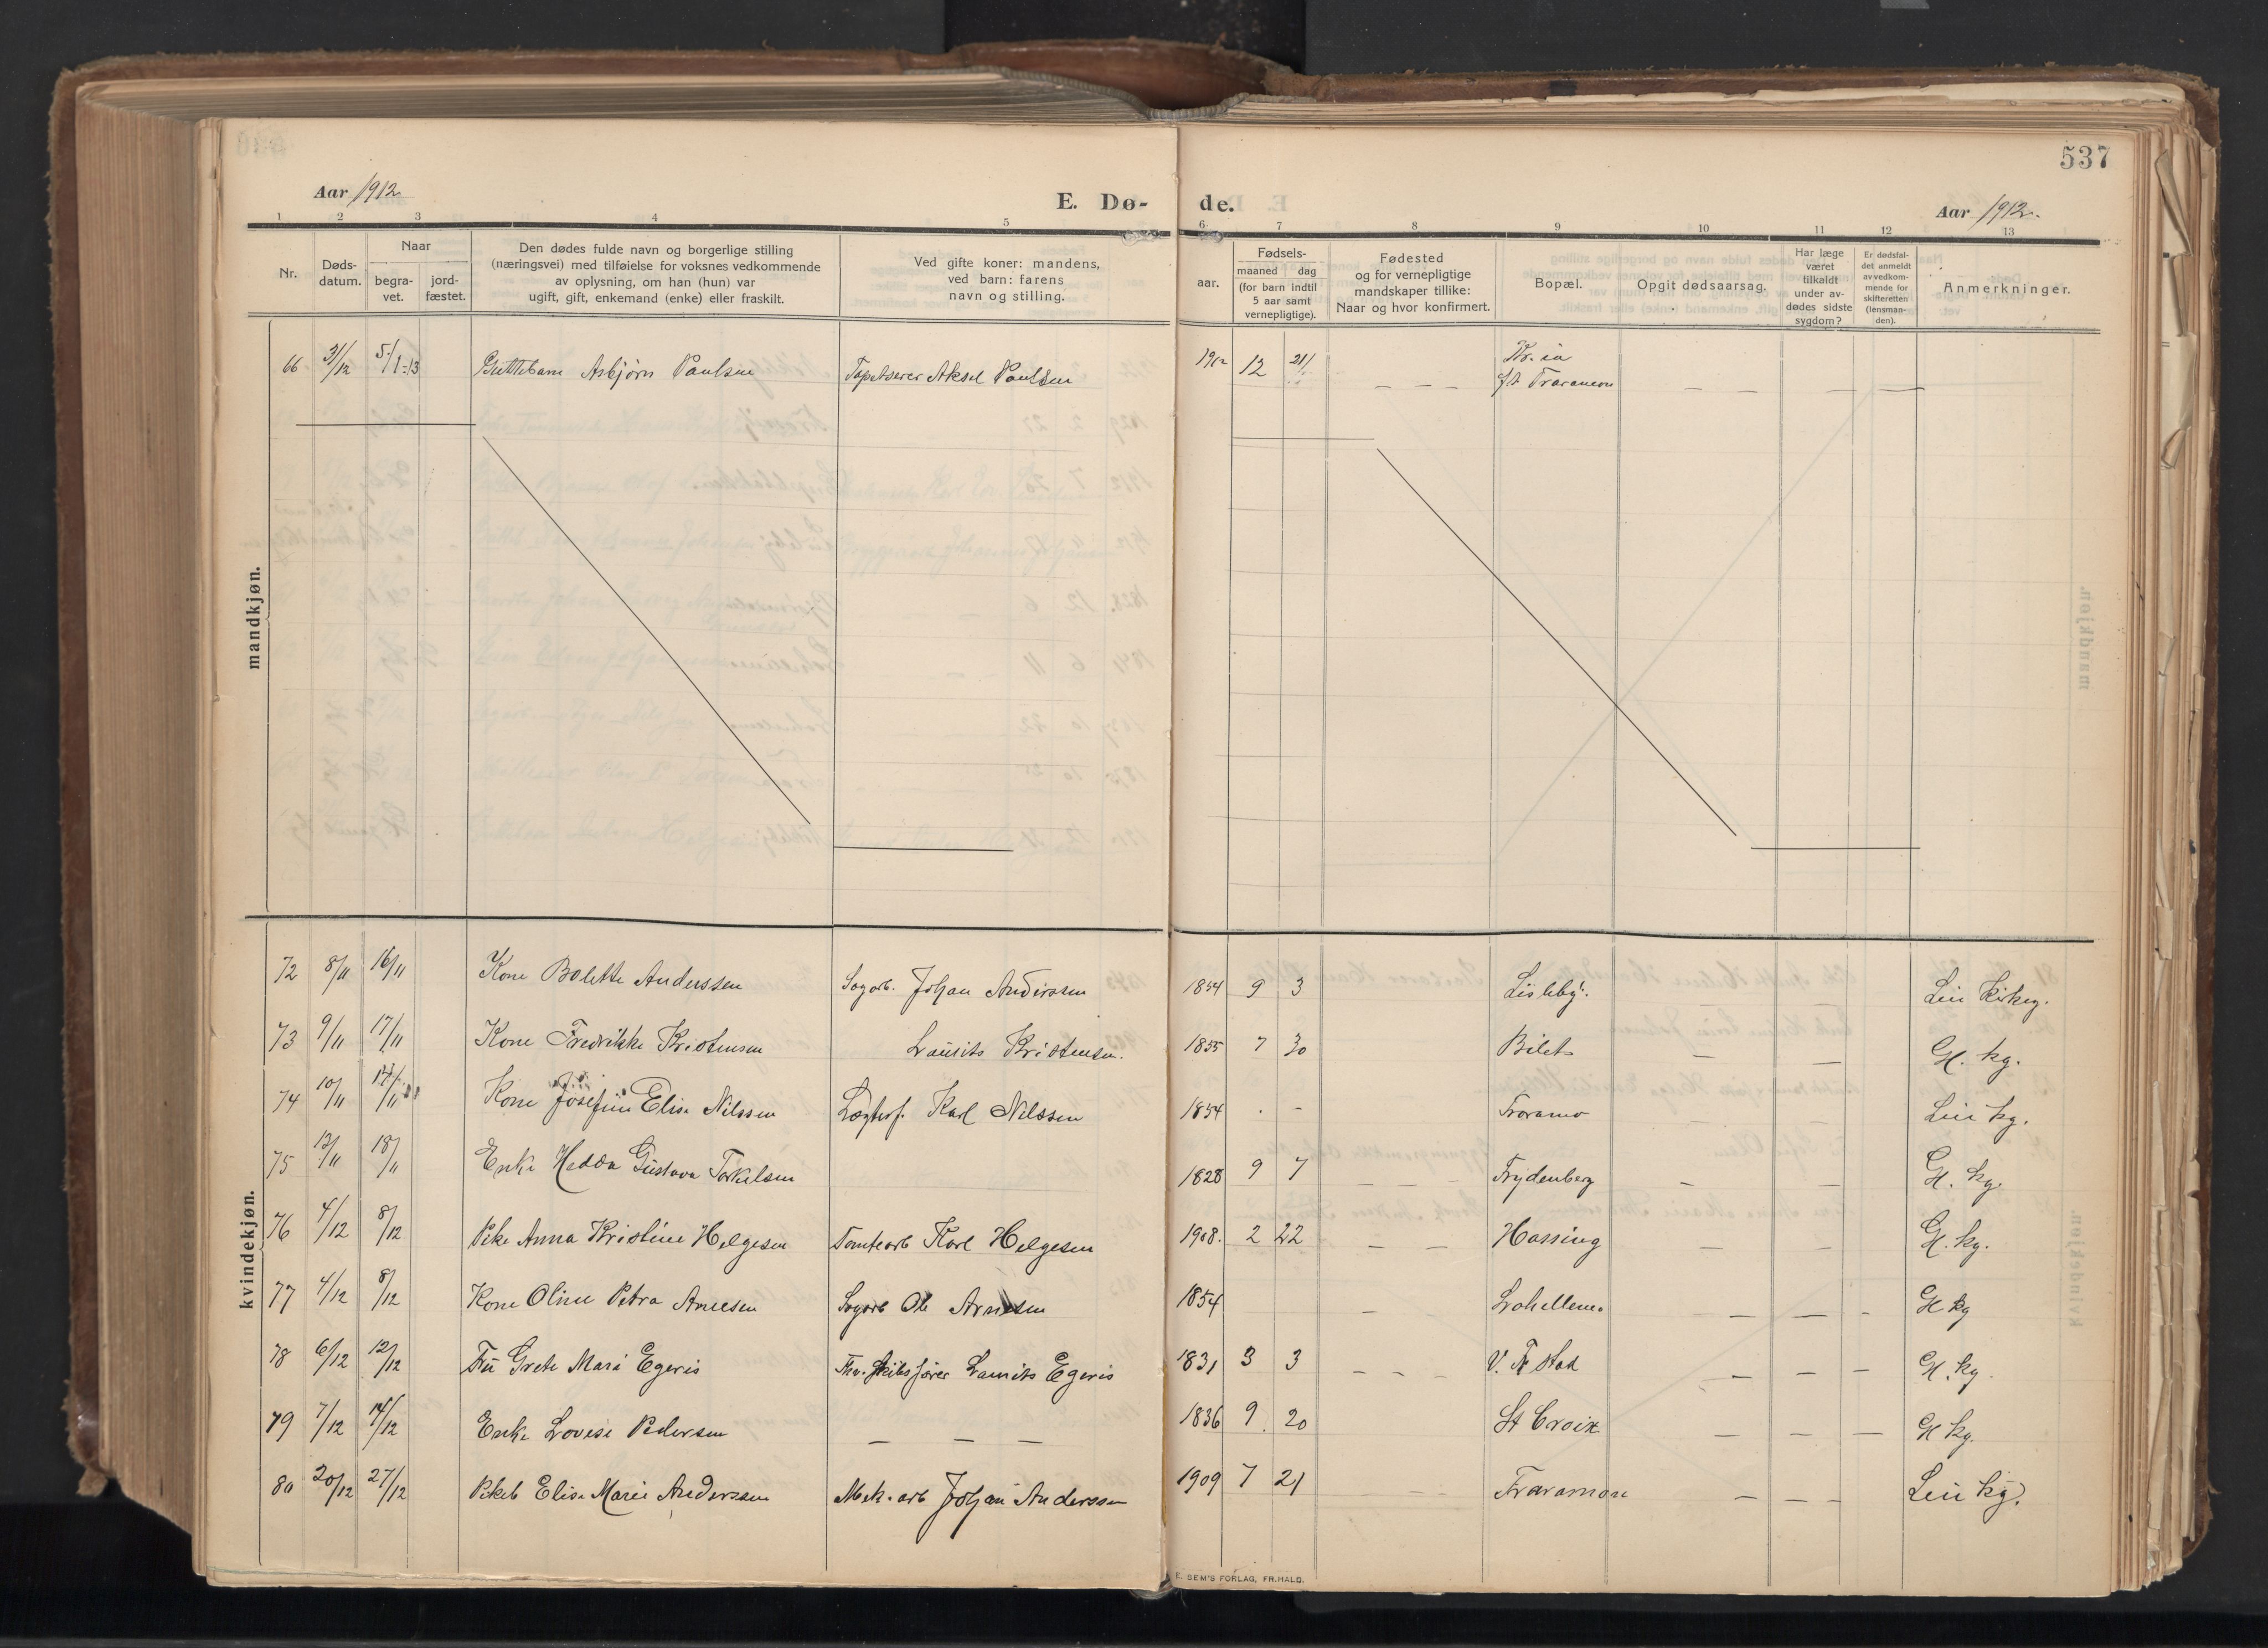 537
Aar 1912
E. Dø-
de.
Aar 1912.
1 2 3 4 5 6 7 8 9 10 11 12 13
Nr.
Døds-
datum.
Naar
begra-
vet.
jord-
fæstet.
Den dødes fulde navn og borgerlige stilling
(næringsvei) med tilføielse for voksnes vedkommende
av oplysning, om han (hun) var
ugift, gift, enkemand (enke) eller fraskilt.
Ved gifte koner: mandens,
ved barn: farens
navn og stilling.
aar.
Fødsels-
maaned dag
(for barn indtil
5 aar samt
vernepligtige).
Fødested
og for vernepligtige
mandskaper tillike:
Naar og hvor konfirmert.
Bopæl.
Opgit dødsaarsag.
Har læge
været
tilkaldt
under av-
dødes sidste
sygdom?
Er dødsfal-
det anmeldt
av vedkom-
mende for
skifteretten
(lensman-
den).
Anmerkninger.
mandkjøn.
66 31/12 5/1-13 Guttebarn Asbjørn Paulsen Tapetserer Aksel Paulsen 1912 12 21/ — — — Kr.ia
f.t. Traramoen — — — —
kvindekjøn.
72 8/11 16/11 Kone Bolette Anderssen Sagarb. Johan Anderssen 1844 9 3 Lisleby. Leie Kirkeg.
73 9/11 17/11 Kone Fredrikke Kristensen Laurits Kristensen. 1855 7 30 Bilet — — G. kg.
74 10/11 17/11 Kone Josefine Elise Nilssen Karl Nilssen 1854 . - Traramo Leie kg.
75 13/11 18/11 Enke Hedda Gustava Torkelsen 1828 9 7 — — — Frydenberg — — G. kg.
76 4/12 8/12 Pike Anna Kristine Helgesen Tomtearb Karl Helgesen 1908. 2 22 — — Hassing — — G. kg.
77 4/12 8/12 Kone Oline Petra Arnesen Sagarb Ole Arnesen 1854 — — — - G kg
78 6/12 12/12 Fru Grete Marie Egeris Fhv. skibsfører Laurits Egeris 1831 3 3 — - - V. Fr stad — — — G. kg.
79 7/12 14/12 Enke Lovise Pedersen — — — 1836 9. 20 St Croix — — — G kg.
80 20/12 27/12 Pikeb Elise Marie Anderssen Mek. arb Johan Anderssen 1909 7 21 Traramoen — — — Leie kg.
E. SEM'S FORLAG, FR.HALD.